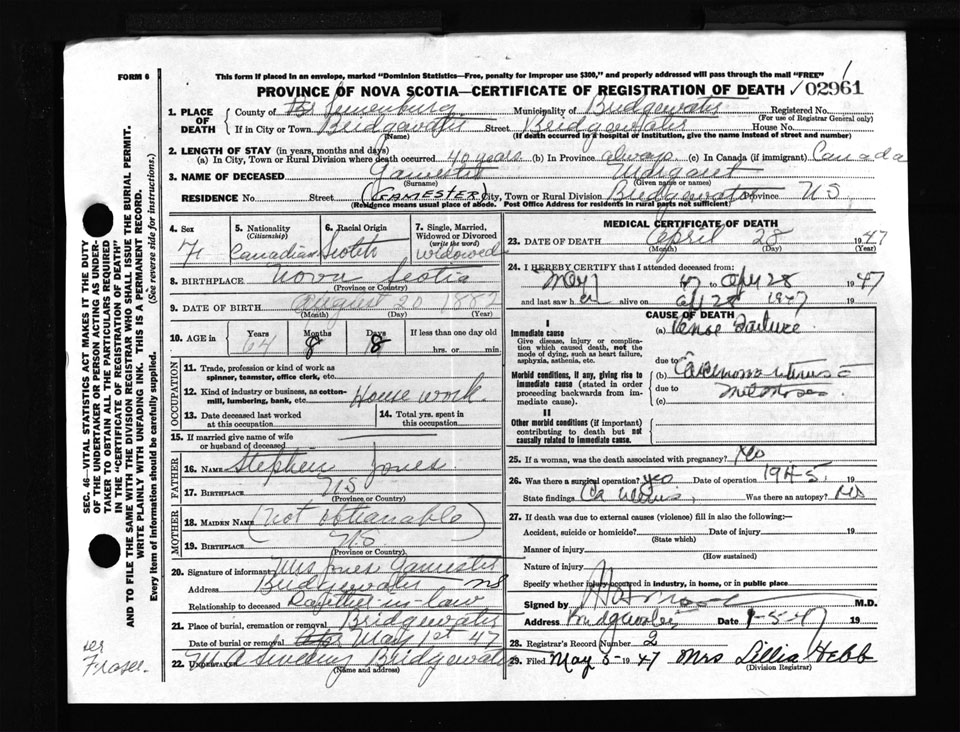 FORM 6
This form if placed in an envelope, marked "Dominion Statistics—Free, penalty for improper use $300," and properly addressed will pass through the mail "FREE"
PROVINCE OF NOVA SCOTIA—CERTIFICATE OF REGISTRATION OF DEATH 02961
1. PLACE OF DEATH County of Lunenburg Municipality of Bridgewater Registered No.
(For use of Registrar General only)
If in City or Town Bridgewater Street Bridgewater House No.
(Name) (If death occurred in a hospital of institution, give the name instead of street and number)
2. LENGTH OF STAY (in years, months and days)
(a) In City, Town or Rural Division where death occurred 40 years (b) In Province always (c) In Canada (if immigrant) Canada
3. NAME OF DECEASED Gamester Margaret
(Surname) (Given name or names)
RESIDENCE No. Street (GAMESTER) City, Town or Rural Division Bridgewater Province NS
(Residence means usual place of abode. Post Office Address for residents in rural parts not sufficient)
4. Sex F
5. Nationality (Citizenship) Canadian
6. Racial Origin Scotch
7. Single, Married, Widowed or Divorced (write the word) Widowed
8. BIRTHPLACE Nova Scotia
(Province or Country)
9. DATE OF BIRTH August 20 1882
(Month) (Day) (Year)
10. AGE in Years 64 Months 8 Days 8 If less than one day old
hrs. or min.
OCCUPATION
11. Trade, profession or kind of work as spinner, teamster, office clerk, etc.
12. Kind of industry or business, as cotton-mill, lumbering, bank, etc. House work.
13. Date deceased last worked at this occupation
14. Total yrs. spent in this occupation
15. If married give name of wife or husband of deceased
FATHER
16. NAME Stephen Jones
17. BIRTHPLACE N.S.
(Province or Country)
MOTHER
18. MAIDEN NAME (not obtianable)
19. BIRTHPLACE N.S.
(Province or Country)
20. Signature of informant Mrs Jones Gamester
Address Bridgewater NS
Relationship to deceased in-law
21. Place of burial, cremation or removal Bridgewater
Date of burial or removal May 1st 47
22. UNDERTAKER Sweeny Bridgewater
(Name and address)
MEDICAL CERTIFICATE OF DEATH
23. DATE OF DEATH April 28 1947
(Month) (Day) (Year)
24. I HEREBY CERTIFY that I attended deceased from:
to Apr 28 1947
and last saw h alive on apl 28 1947
CAUSE OF DEATH
I
Immediate cause
Give disease, injury or complication which caused death, not the mode of dying, such as heart failure, asphyxia, asthenia, etc.
(a) Failure
due to
Morbid conditions, if any, giving rise to immediate cause (stated in order proceeding backwards from immediate cause).
(b) Carcinoma uterus
due to
(c)
II
Other morbid conditions (if important) contributing to death but not causally related to immediate cause.
25. If a woman, was the death associated with pregnancy? No
26. Was there a surgical operation? Date of operation 1945
State findings Ca uterus Was there an autopsy? no
27. If death was due to external causes (violence) fill in also the following:—
Accident, suicide or homicide? Date of injury 19
(State which)
Manner of injury
(How sustained)
Nature of injury
Specify whether injury occurred in industry, in home, or in public place
Signed by M.D.
Address Bridgewater Date 1-5-47 19
28. Registrar's Record Number 2
29. Filed May 5 1947 Mrs Lillia Hebb
(Division Registrar)
SEC. 46—VITAL STATISTICS ACT MAKES IT THE DUTY
OF THE UNDERTAKER OR PERSON ACTING AS UNDER-
TAKER TO OBTAIN ALL THE PARTICULARS REQUIRED
IN THE "CERTIFICATE OF REGISTRATION OF DEATH"
AND TO FILE THE SAME WITH THE DIVISION REGISTRAR WHO SHALL ISSUE THE BURIAL PERMIT.
WRITE PLAINLY WITH UNFADING INK. THIS IS A PERMANENT RECORD.
Every item of information should be carefully supplied. (See reverse side for instructions.)
per
Fraser.